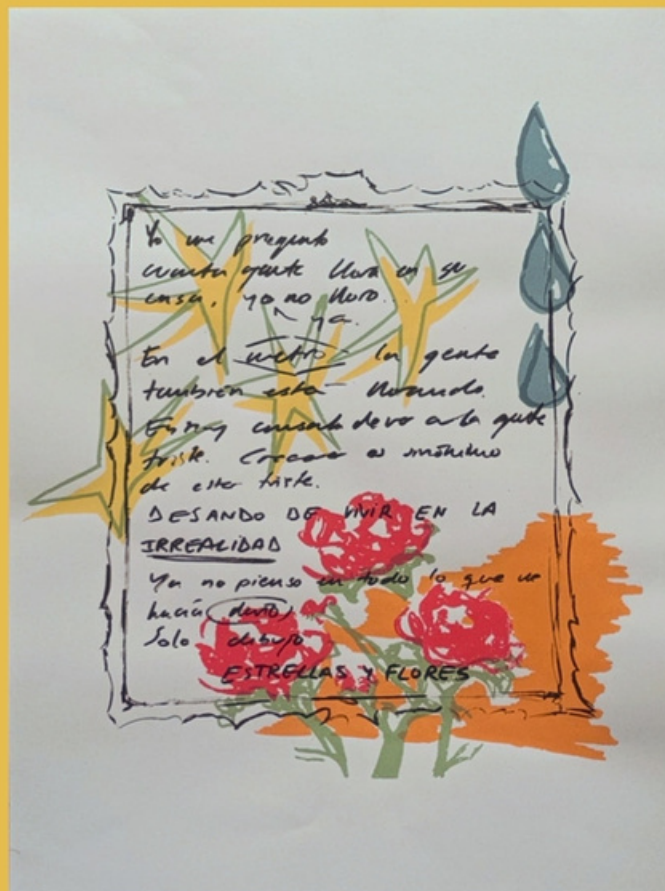 Yo me pregunto
cuanta gente llora en su
casa, yo no lloro.
ya.
En el metro la gente
también está llorando.
Estoy cansada de ver a la gente
triste. Creces sinónimo
de estar triste.
DESANDO DE VIVIR EN LA
IRREALIDAD
Ya no pienso en todo lo que me
hacía daño,
Solo dibujo
ESTRELLAS Y FLORES